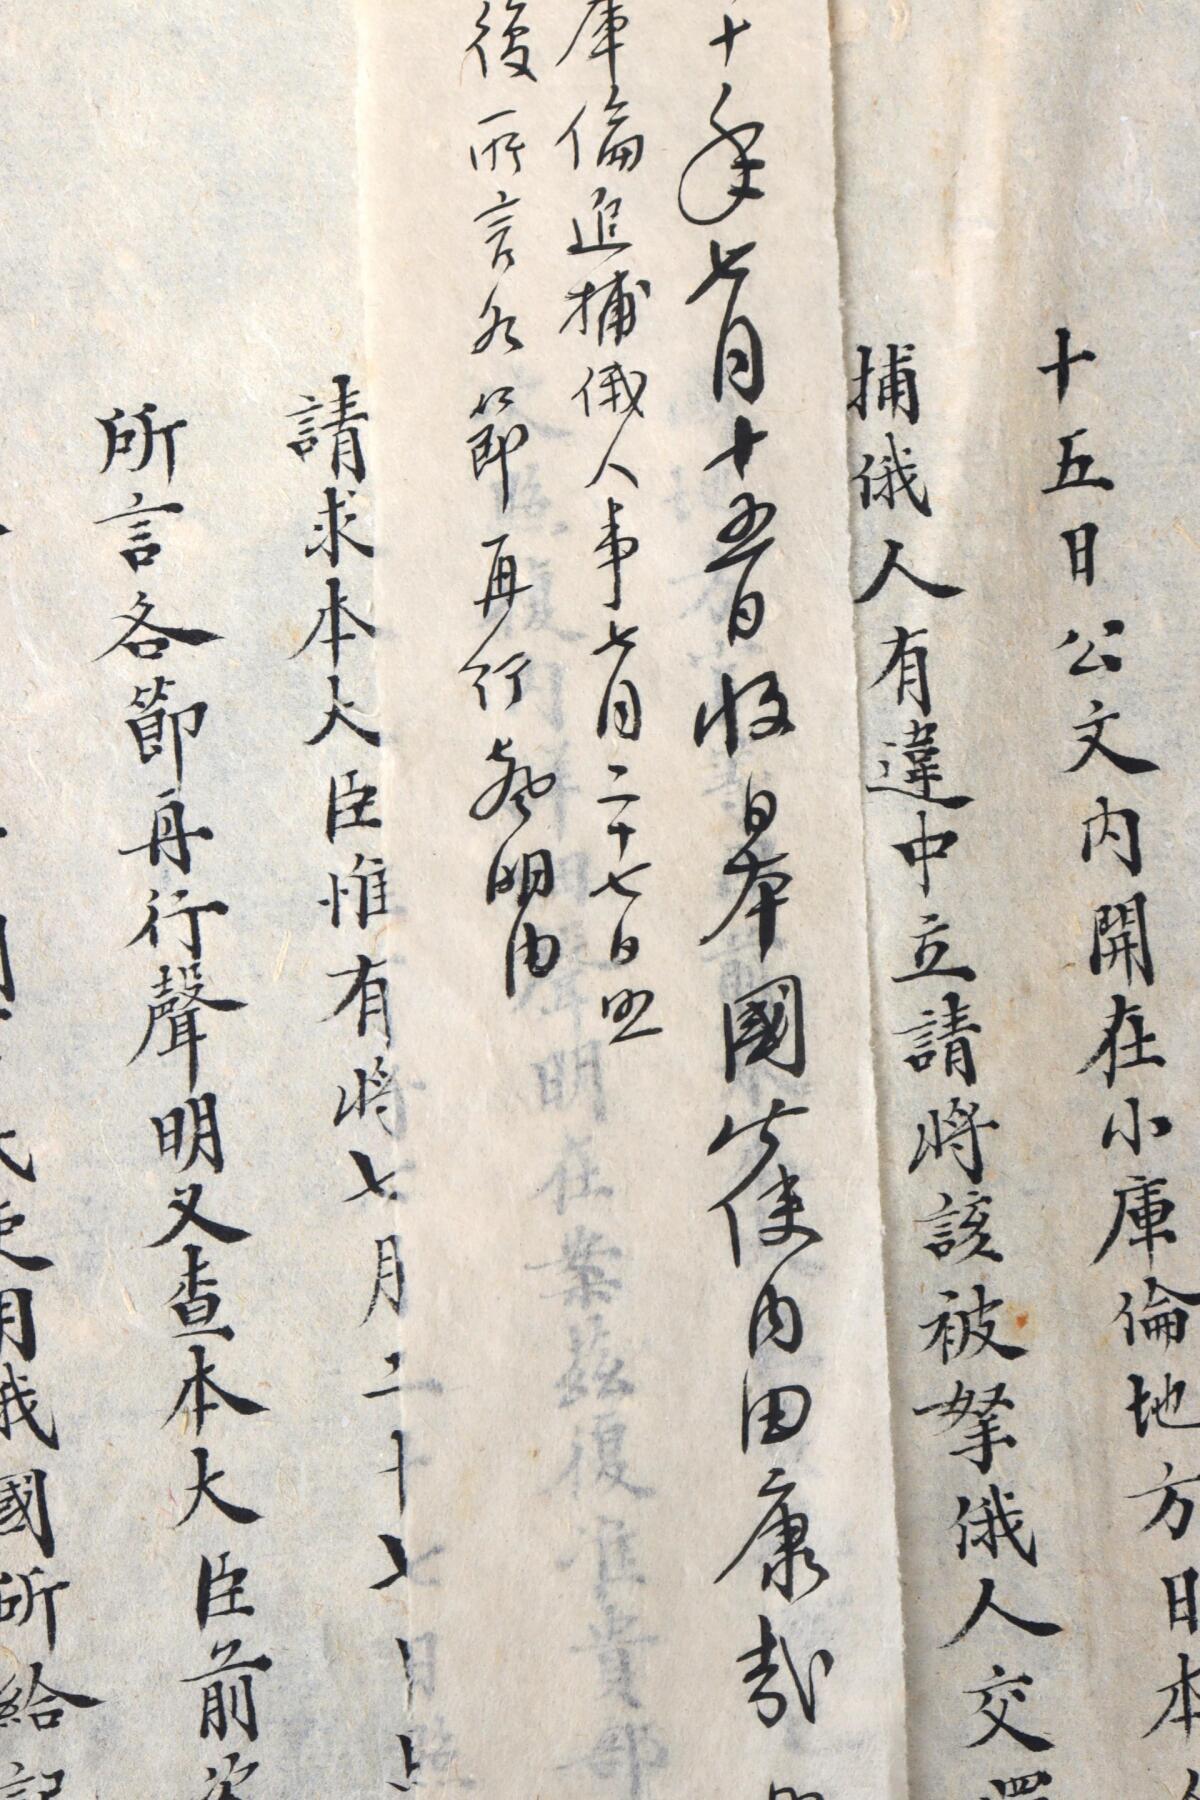 十五日公文內開在小庫倫地方日本
捕俄人有違中立請將該被拏俄人交還
十年七月十五日收日本國公使內田康哉
庫倫追捕俄人事七月二十七日照
後所言各節再行聲明由
請求本大臣惟有將七月二十七日
所言各節再行聲明又查本大臣前次
俄國所給